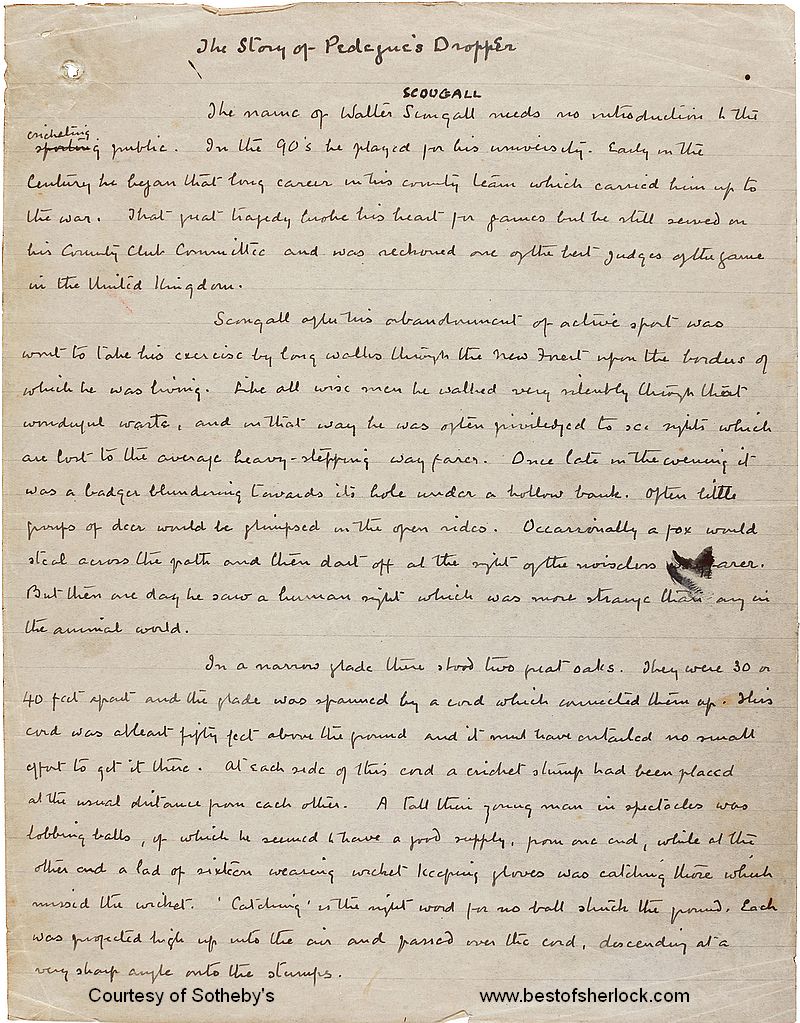 The Story of Pedegue's Dropper
SCOUGALL
The name of Walter Scougall needs no introduction to the
cricketing
sporting public. In the 90's he played for his university. Early in the
Century he began that long career in his county team which carried him up to
the war. That great tragedy broke his heart for games but he still served on
his County Club Committee and was reckoned one of the best judges of the game
in the United Kingdom.
Scougall after his abandonment of active sport was
wont to take his exercise by long walks through the New Forest upon the borders of
which he was living. Like all wise men he walked very silently through that
wonderful waste, and in that way he was often priviledged to see sights which
are lost to the average heavy-stepping wayfarer. Once late in the evening it
was a badger blundering towards its hole under a hollow bank. Often little
groups of deer would be glimpsed in the open rides. Occassionally a fox would
steal across the path and then dart off at the sight of the noiseless wayfarer.
But then one day he saw a human sight which was more strange than any in
the animal world.
In a narrow glade there stood two great oaks. They were 30 or
40 feet apart and the glade was spanned by a cord which connected them up. This
cord was at least fifty feet above the ground and it must have entailed no small
effort to get it there. At each side of this cord a cricket stump had been placed
at the usual distance from each other. A tall thin young man in spectacles was
lobbing balls, of which he seemed to have a good supply, from one end, while at the
other end a lad of sixteen wearing wicket keeping gloves was catching those which
missed the wicket. 'Catching' is the right word for no ball struck the ground. Each
was projected high up into the air and passed over the cord, descending at a
very sharp angle onto the stumps.
Courtesy of Sotheby's www.bestofsherlock.com